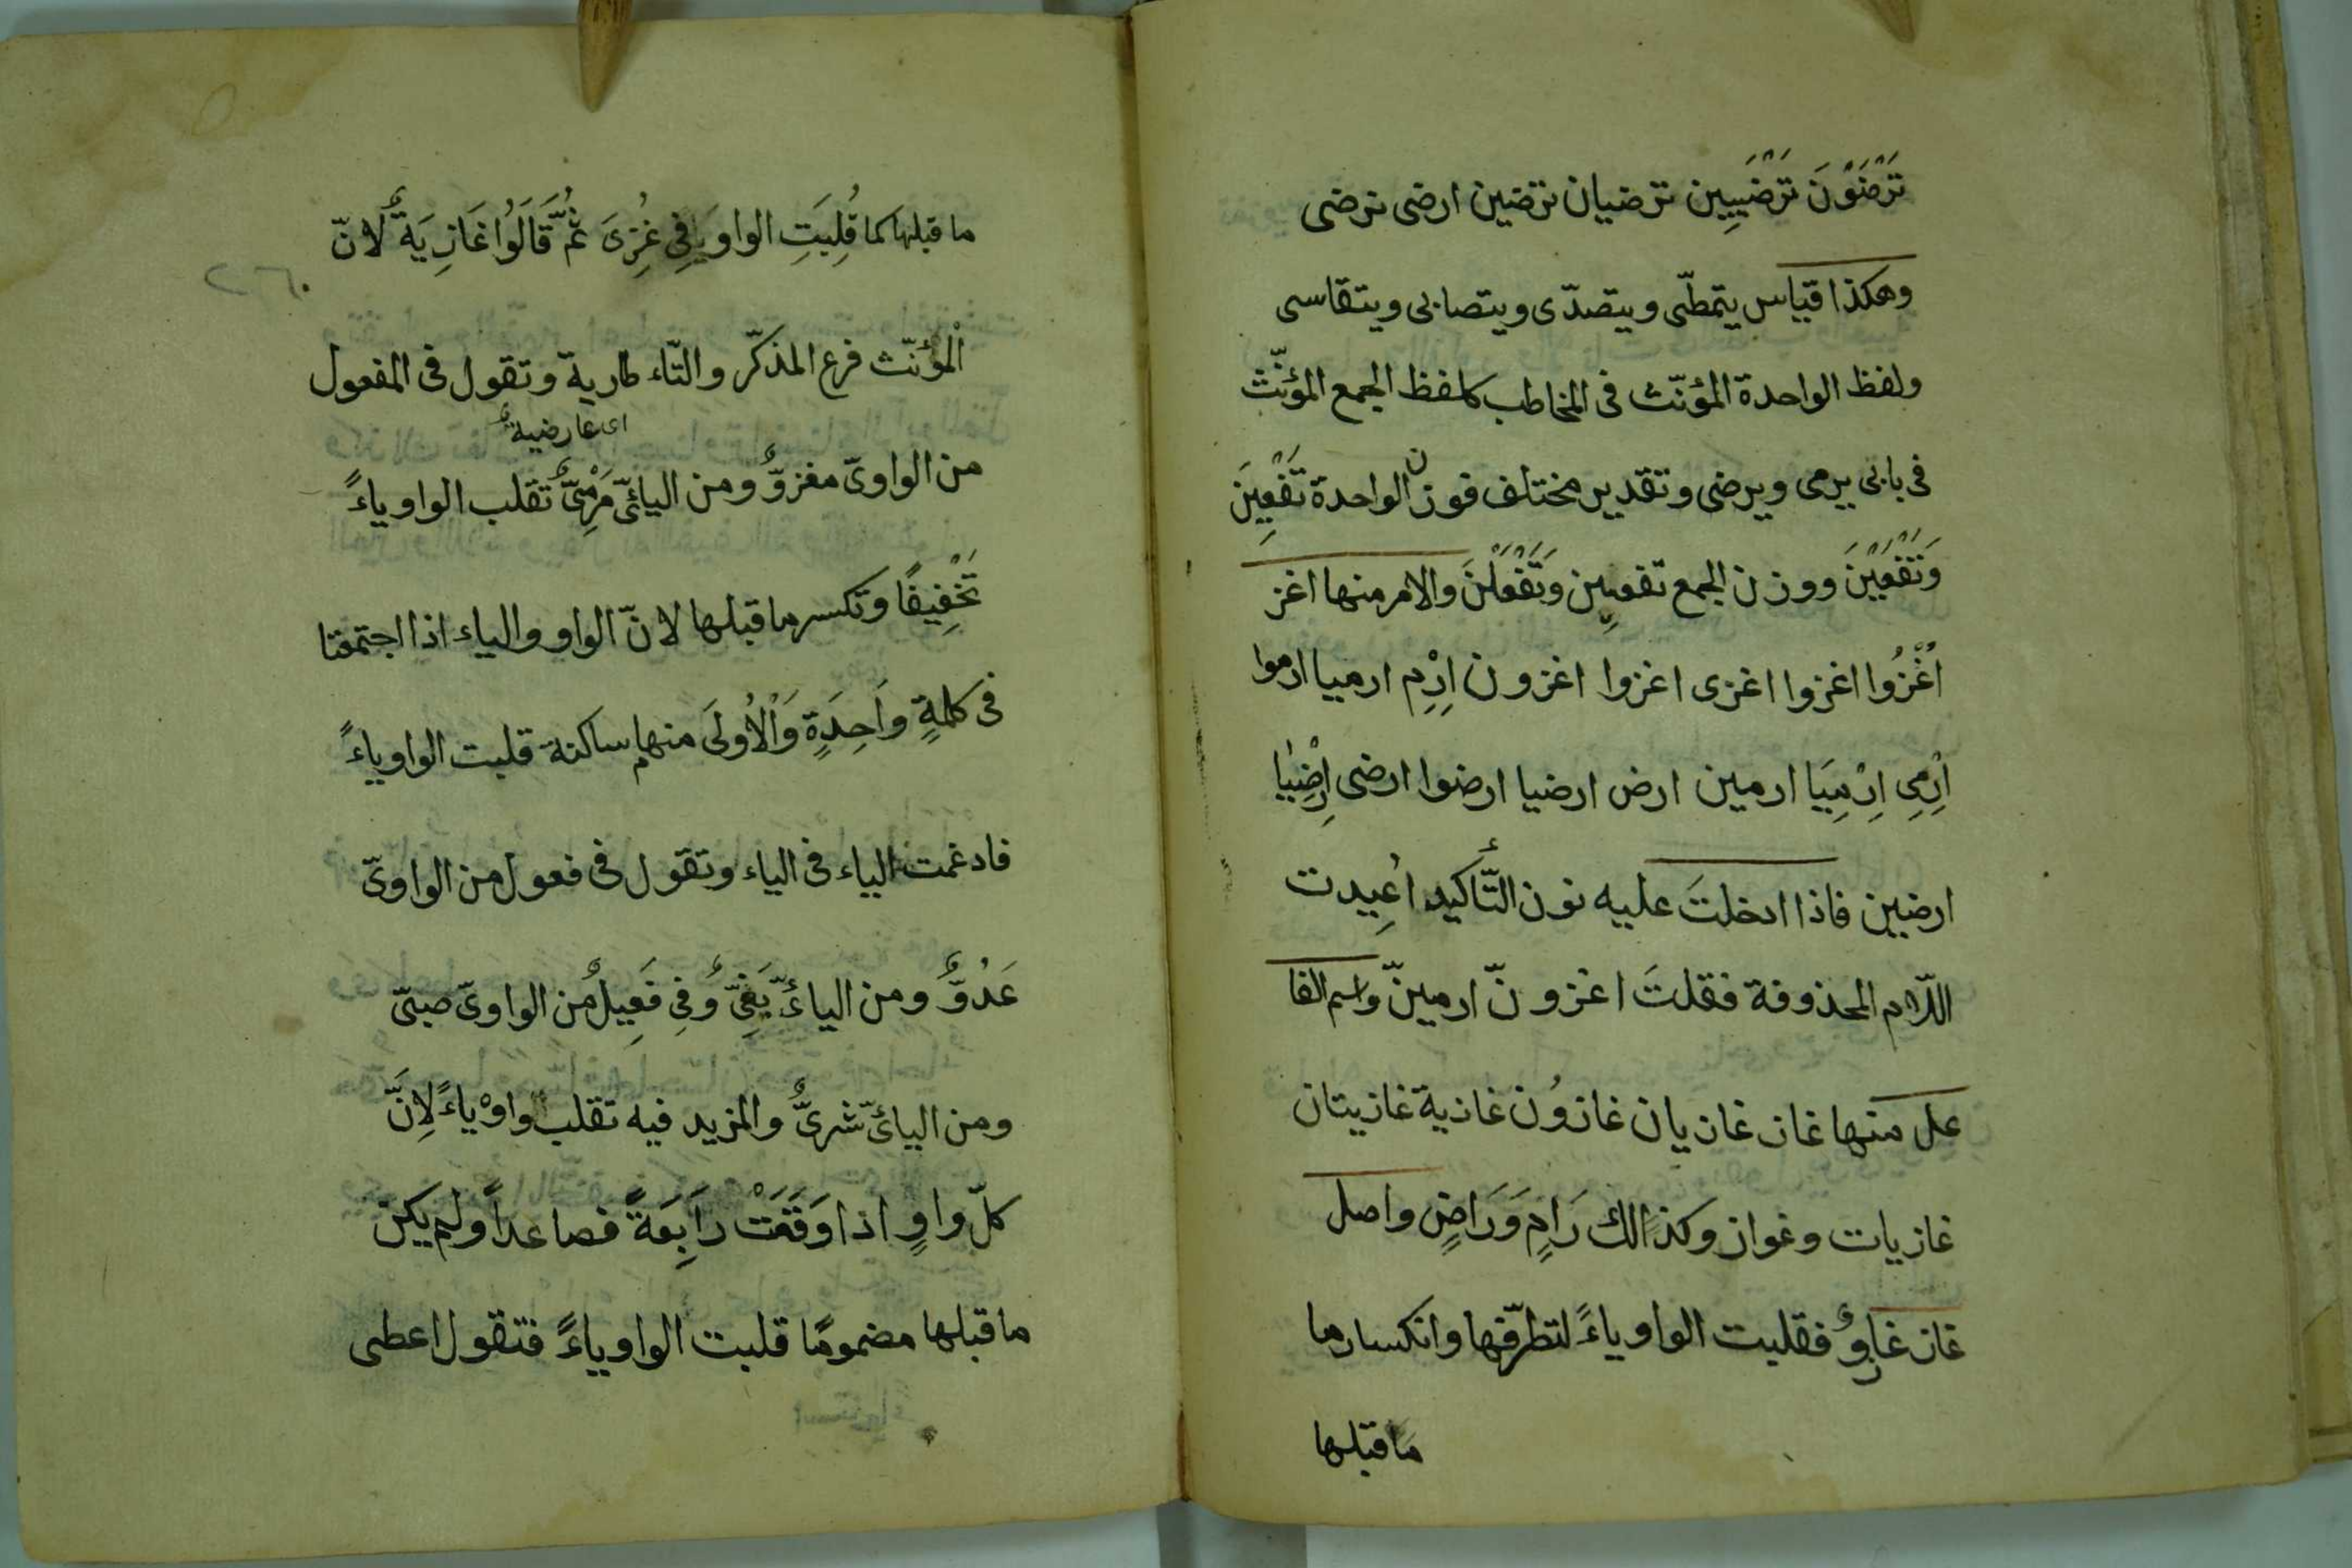 تَرْضَوْنَ تَرْضَيِينَ ترضيان ترضين ارضى نرضى
وهكذا قياس يتمطّى ويتصدّى ويتصابى ويتقاسى
ولفظ الواحدة المؤنّث فى المخاطب كلفظ الجمع المؤنّث
فى بابى يرمى ويرضى وتقدير مختلف فوزن الواحدة تَفْعِينَ
وَتَفْعَيْنَ ووزن الجمع تفعِلن وَتَفْعَلْنَ والامر منها اغز
اُغْزُوا اغزوا اغزى اغزوا اغزون اِرْمِ ارميا ارموا
اِرْمِى اِرْمِيَا ارمين ارض ارضيا ارضوا ارضى اِرْضِيَا
ارضين فاذا ادخلتَ عليه نون التّأكيد اُعِيدت
اللّام المحذوفة فقلتَ اغزونّ ارمينّ واسم الفا
عل منها غاز غازيان غازوُن غازية غازيتان
غازيات وغواز وكذالك رَامٍ وَرَاضٍ واصل
غاز غازوٌ فقلبت الواو ياءً لتطرّفها وانكسار ما
ما قبلها
ما قبلها كما قُلِبَتِ الواو يَا فِى غُزِىَ ثُمَّ قَالَوُا غَازِيَةٌ لانّ
الْمؤنّث فرع المذكّر والتّاء طارية وتقول فى المفعول
اى عارضيةٌ
من الواوىّ مغزوٌّ ومن اليائىّ مَرْمِىٌّ تقلب الواو ياءً
تَخْفِيفًا وتكسر ما قبلها لانّ الواو والياء اذا اجتمعتا
فى كلمةٍ وَاحِدَةٍ وَالْاُولَى منهما ساكنة قلبت الواو ياءً
فادغمت الياء فى الياء وتقول فى فعول من الواوىّ
عَدُوٌّ ومن اليائىّ بَغِىٌّ وَفِى فَعِيلٌ من الواوىّ صبىّ
ومن اليائىّ شرىٌّ والمزيد فيه تقلب واوْ ياءً لِانَّ
كلّ واوٍ اذا وَقَعَتْ رَابِعَةً فصاعداً ولم يكن
ما قبلها مضمومًا قلبت الواو ياءً فتقول اعطى